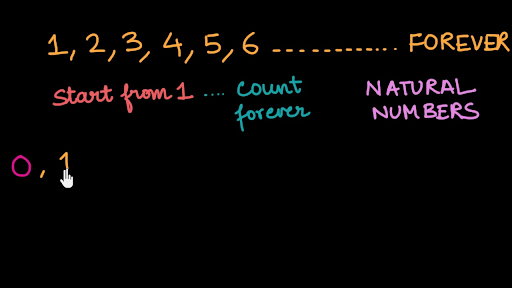 1, 2, 3, 4, 5, 6 ............. FOREVER
Start from 1 .... Count forever
NATURAL NUMBERS
0, 1